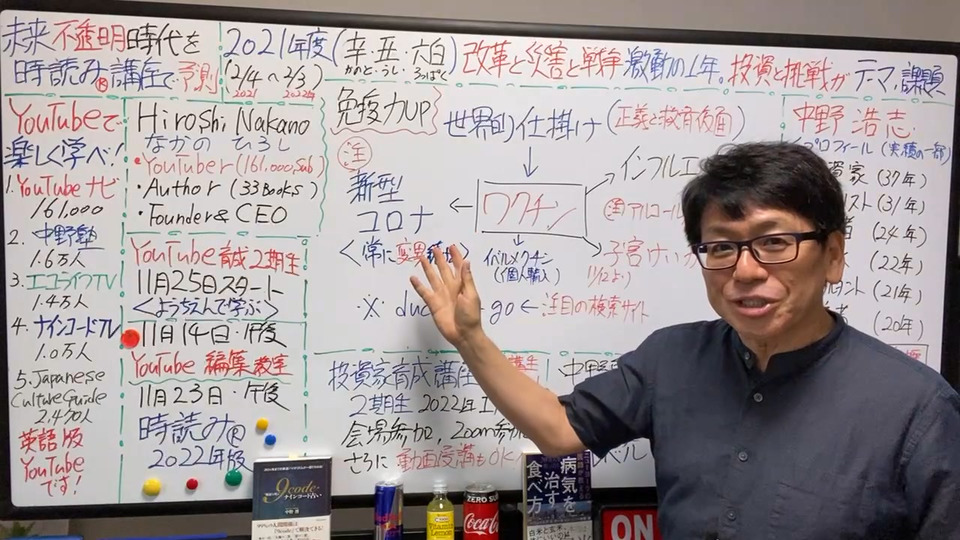 未来不透明時代を
時読み®講座で予測
2021年度(辛・丑・六白)改革と災害と戦争激動の1年。投資と挑戦がテーマ、課題
かのと・うし・ろっぱく
(2/4〜2/3)
2021 2022年
YouTubeで
楽しく学べ!
1. YouTubeナビ
161,000
2. 中野塾
1.6万人
3. エコライフTV
1.4万人
4. ナインコードTV
1.0万人
5. Japanese
Culture Guide
2,470人
英語版
YouTube
です!
Hiroshi Nakano
なかの ひろし
・YouTuber(161,000Sub)
・Author (33Books)
・Founder & CEO
YouTube育成2期生
11月25日スタート
<ようちえんで学ぶ>
11月14日・午後
YouTube 編集教室
11月23日・午後
時読み®
2022年版
免疫力UP
注
世界的仕掛け(正義と教育仮面)
新型
コロナ
<常に変異
ワクチン
インフルエ
注アルコール
子宮けい
11/12より
イベルメクチン
(個人輸入)
※ duc go ← 注目の検索サイト
投資家育成講座
2期生 2022年1
会場参加, Zoom参加
さらに動画受講もOK
中野
中野 浩志
プロフィール(実績の一部)
資家(37年)
スト(31年)
(24年)
(22年)
ント(21年)
(20年)
9code
ナインコード占い
ZERO SU
Coca-C
Vitamin
Lemon
病気を
治す
食べ方
ON